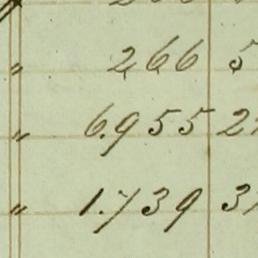 " 266 5
" 6.955 2
" 1.739 3